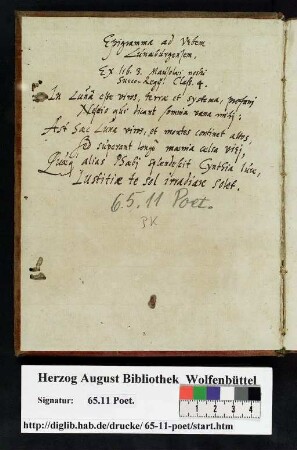 Epigramma ad Urbem
Lunaburgensem,
Ex lib. 3. Mausolei nostri
Class. 4.
In Luna esse viros, terrae et systema, profani
qui dicant somnia vana mihi:
Ast haec Luna viros, et montes continet altos,
superant longe moenia celsa viri,
alias Phoebi splendescit Cynthia luce,
Iustitiae te sol irradiare solet.
65.11 Poet.
Herzog August Bibliothek Wolfenbüttel
Signatur: 65.11 Poet.
1 2 3 4
http://diglib.hab.de/drucke/65-11-poet/start.htm